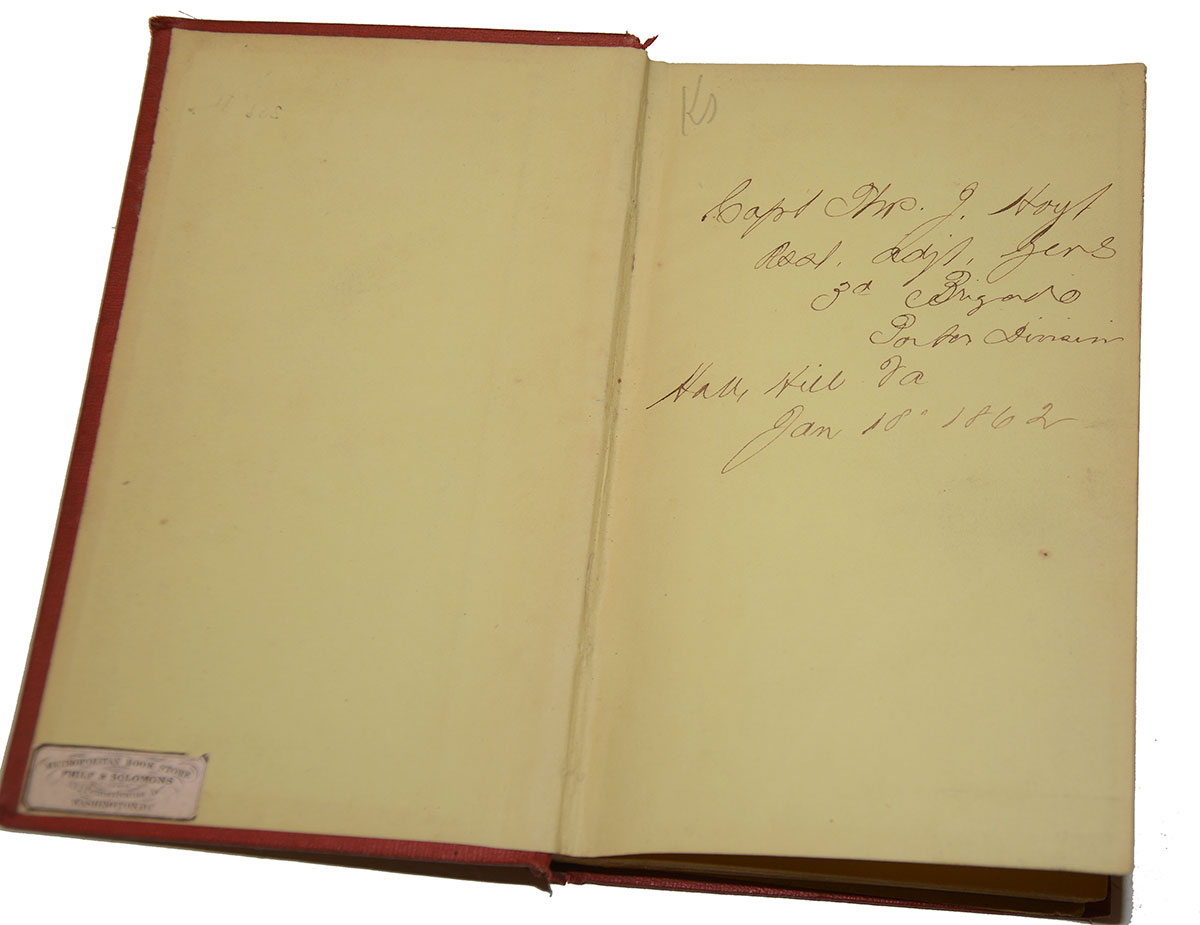 METROPOLITAN BOOK STORE
PHILP & SOLOMONS
WASHINGTON D.C.
Ks
Capt Tho. J. Hoyt
Asst. Adjt. Genl
3d Brigade
Porter Division
Halls Hill Va
Jan 18" 1862